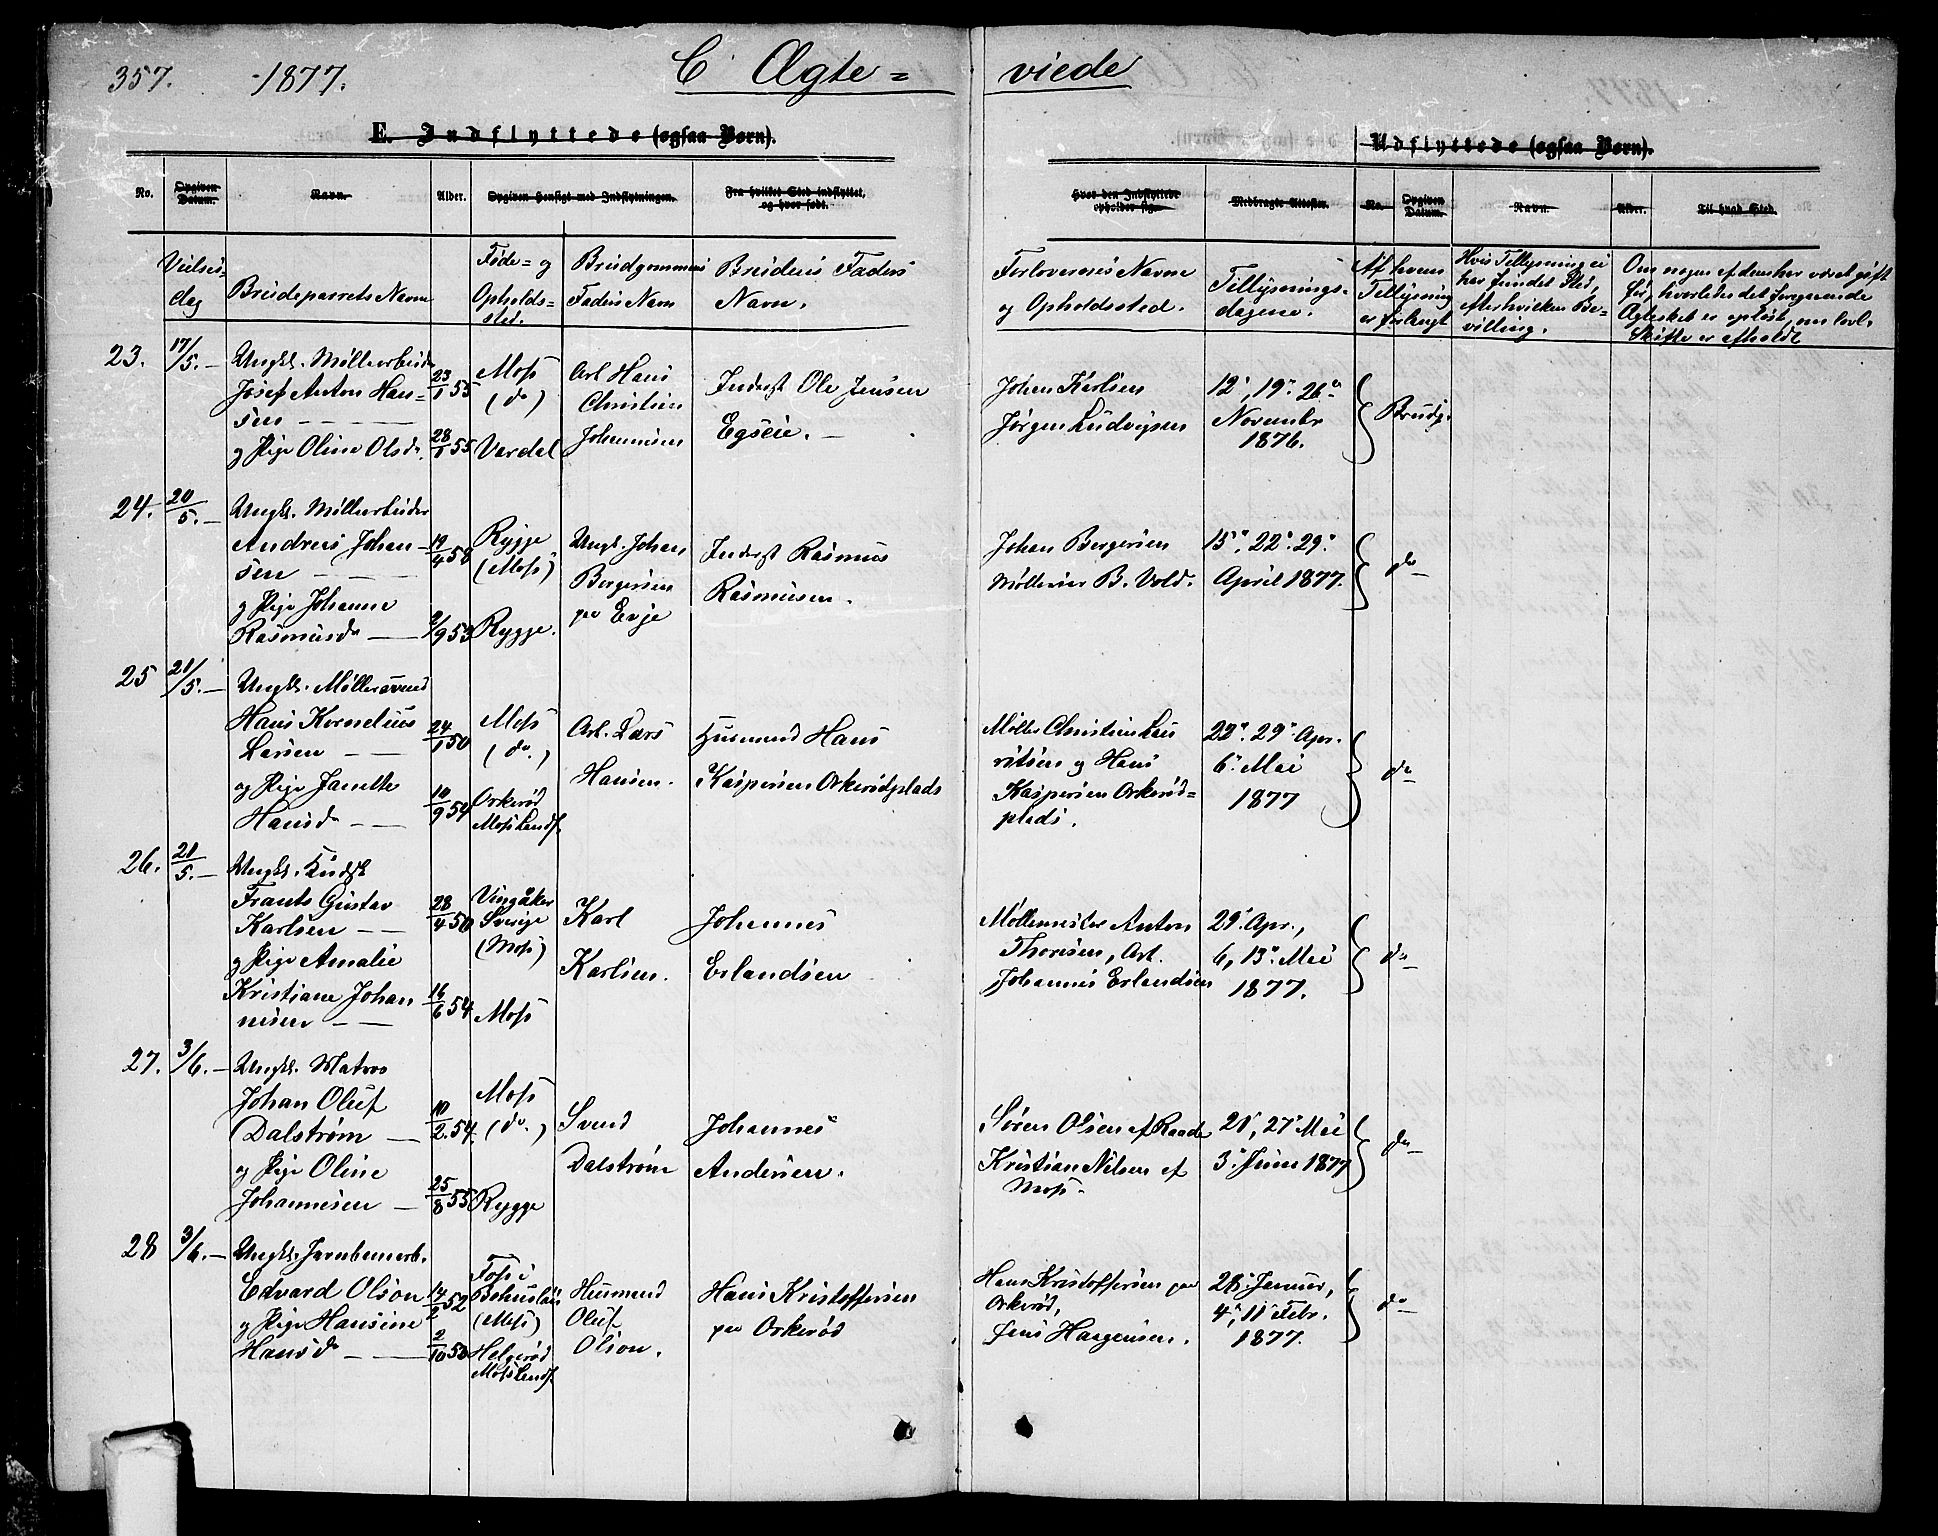 357. -1877. C Ægte= viede
E. Indflyttede (ogsaa Børn). Udflyttede (ogsaa Børn).
No. Opgiven Datum. Navn. Alder. Opgiven Hensigt med Indflytningen. Fra hvilket Sted indflyttet, og hvor født. Hvor den Indflyttede opholder sig. Medbragte Attester. No. Opgiven Datum. Navn. Alder. Til hvad Sted.
Vielses-
dag
Brudeparrets Navn
Føde= og
Opholds-
sted.
Brudgommens
Faders Navn
Brudens Faders
Navn.
Forloverenes Navne
og Opholdssted.
Tillysnings-
dagene.
Af hvem
Tillysning
er forlangt
Hvis Tillysning ei
har fundet Sted,
efter hvilken Be-
villing.
Om nogen af dem har været gift
før, hvorledes det foregaaende
Ægteskab er opløst, om lovl.
Skifte er afholdt
23. 17/5. Ungk. Møllearbeider
Josef Anton Han=
sen
og Pige Oline Olsdr.
23/1 55
28/1 55
Moss
(do)
Vardal
Arb. Hans
Christian
Johannesen
Inderst Ole Jensen
Egseie.
Johan Karlsen
Jørgen Ludvigsen
12', 19" 26"
November
1876.
Brudg.
24. 20/5. Ungk. Møllearbeider
Andreas Johan-
sen
og Pige Johanne
Rasmusdr
19/4 58
2/9 53
Rygge
(Moss)
Rygge.
Ungk. Johan
Bergersen
paa Evje
Inderst Rasmus
Rasmusen.
Johan Bergersen
Møllesvend B. Vold.
15", 22" 29"
April 1877.
do
25 21/5. Ungk. Møllersvend
Hans Kornelius
Larsen
og Pige Janette
Hansdr
24/1 50
10/9 54
Moss
(do.)
Orkerød
Moss Landss.
Arb. Lars
Hansen.
Husmand Hans
Kaspersen Orkerødplads
Møller Christian Lau
ritsen og Hans
Kaspersen Orkerød=
plads.
22". 29" Apr.
6" Mai
1877
do
26. 21/5. Ungk. Kudsk
Frants Gustav
Karlsen
og Pige Amalie
Kristiane Johan
nesen
28/4 50
16/6 54
Vingåker
Sverige
(Moss)
Moss
Karl
Karlsen.
Johannes
Erlandsen
Møllemester Anton
Thoresen, Arb.
Johannes Erlandsen
29" Apr.,
6, 13" Mai
1877.
do
27. 3/6. Ungk. Matros
Johan Oluf
Dalstrøm
og Pige Oline
Johannesen
10/2. 54.
25/8 55
Moss
(do.)
Rygge
Svend
Dalstrøm
Johannes
Andersen.
Søren Olsen af Raade
Kristian Nilsen af
Moss.
21", 27" Mai
3" Juni 1877
do
28 3/6. Ungk. Jernbanearb.
Edvard Olson
og Pige Hansine
Hansdr
14/2 52
2/10 50
Foss i
Bohuslän
(Moss)
Helgerød
Moss Landss.
Husmand
Oluf
Olson.
Hans Kristoffersen
paa Orkerød
Hans Kristoffersen paa
Orkerød,
Jens Haagensen.
28" Januar,
4", 11" Febr.
1877.
do